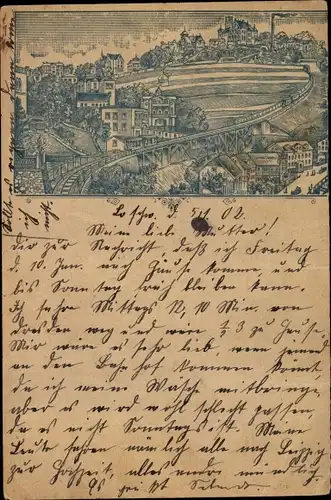 Loschw. d. 02.
Meine liebe Mutter!
dir zur Nachricht daß ich Freitag
d. 10. Jan. nach Hause komme, und
bis Sonntag früh bleiben kann.
Ich fahre Mittags 12,10 Min. von
Dresden weg und wär ½ 3 zu Hause
Mir wäre es sehr lieb, wenn jemand
an den Bahnhof kommen könnt,
da ich meine Wäsche mitbringe,
aber es wird wohl schlecht passen,
da es nicht Sonntags ist. Meine
Leute fahren nämlich alle nach Leipzig
zur Hochzeit, alles andre mündlich.
Es grüßt